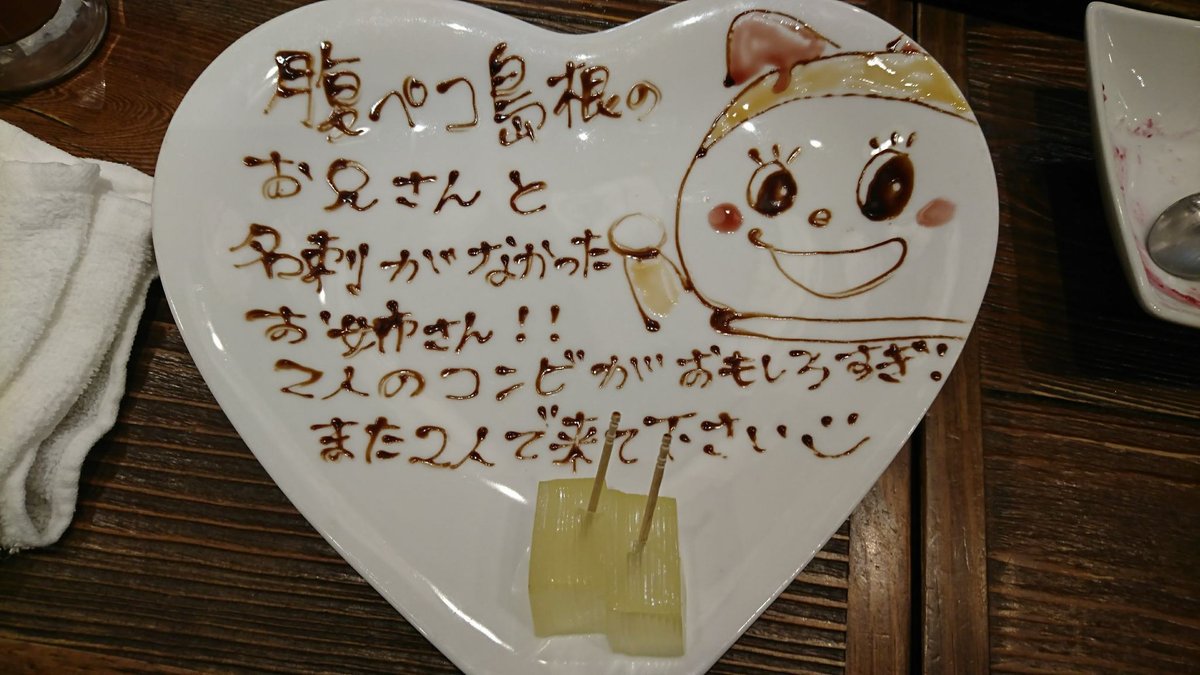 腹ペコ島根の
お兄さんと
名刺がなかった
お姉さん!!
2人のコンビがおもしろすぎ!!
また2人で来て下さい